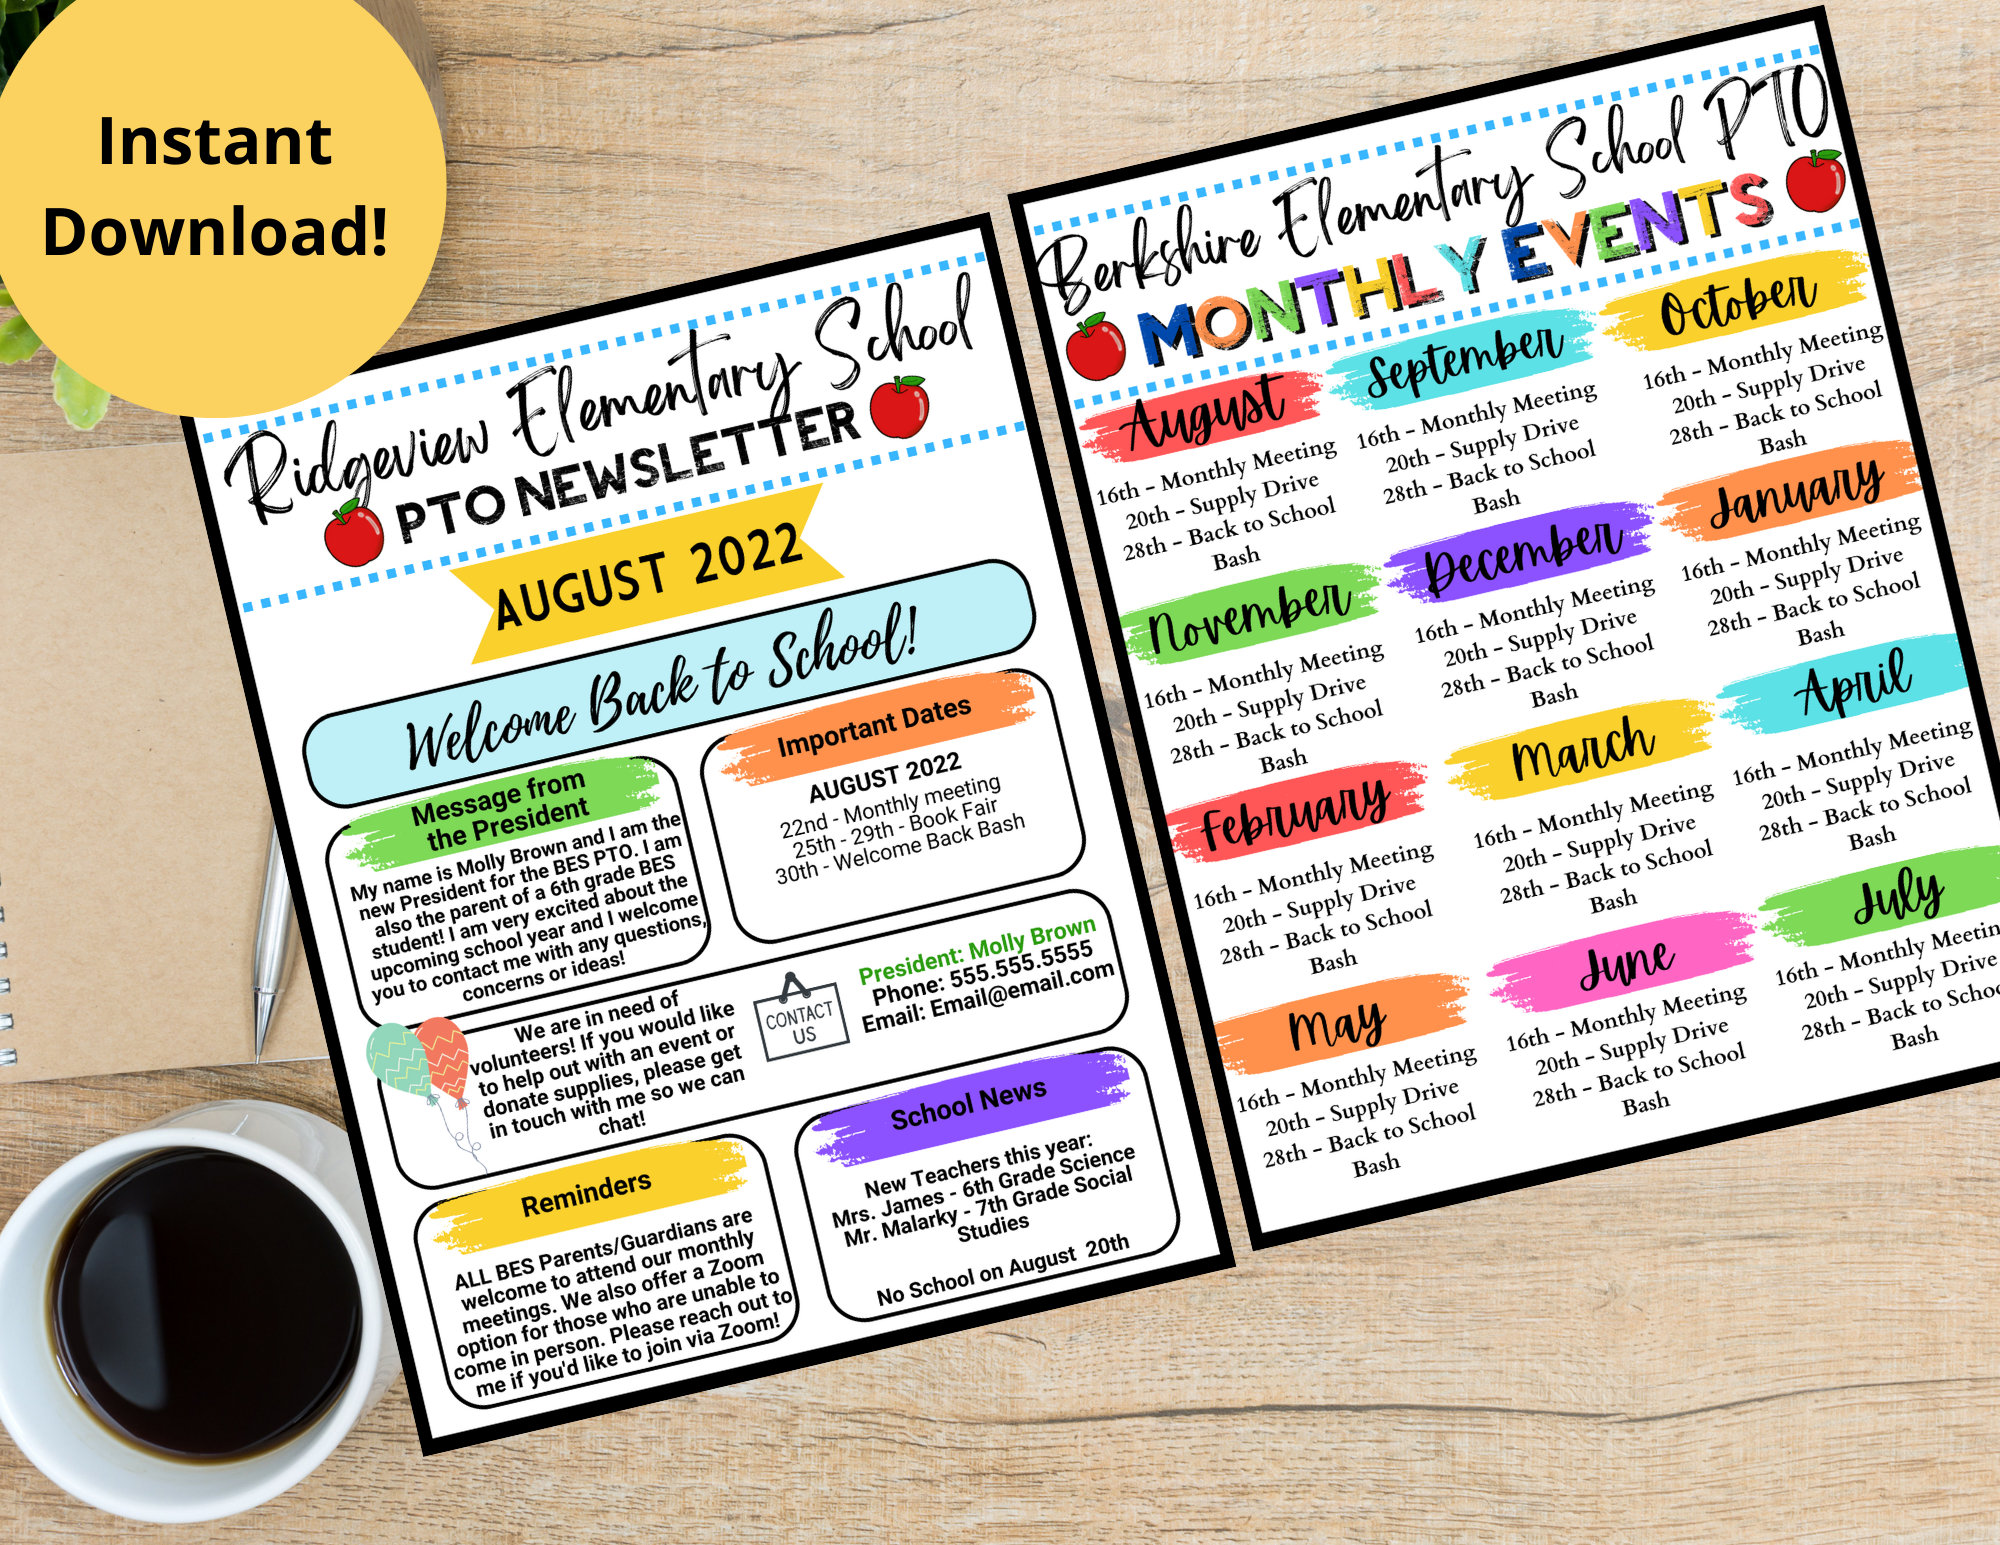 Instant
Download!
Ridgeview Elementary School
PTO NEWSLETTER
AUGUST 2022
Welcome Back to School!
Message from
the President
My name is Molly Brown and I am the
new President for the BES PTO. I am
also the parent of a 6th grade BES
student! I am very excited about the
upcoming school year and I welcome
you to contact me with any questions,
concerns or ideas!
Important Dates
AUGUST 2022
22nd - Monthly meeting
25th - 29th - Book Fair
30th - Welcome Back Bash
We are in need of
volunteers! If you would like
to help out with an event or
donate supplies, please get
in touch with me so we can
chat!
CONTACT
US
President: Molly Brown
Phone: 555.555.5555
Email: Email@email.com
Reminders
ALL BES Parents/Guardians are
welcome to attend our monthly
meetings. We also offer a Zoom
option for those who are unable to
come in person. Please reach out to
me if you'd like to join via Zoom!
School News
New Teachers this year:
Mrs. James - 6th Grade Science
Mr. Malarky - 7th Grade Social
Studies
No School on August 20th
Berkshire Elementary School PTO
MONTHLY EVENTS
August
16th - Monthly Meeting
20th - Supply Drive
28th - Back to School
Bash
September
16th - Monthly Meeting
20th - Supply Drive
28th - Back to School
Bash
October
16th - Monthly Meeting
20th - Supply Drive
28th - Back to School
Bash
November
16th - Monthly Meeting
20th - Supply Drive
28th - Back to School
Bash
December
16th - Monthly Meeting
20th - Supply Drive
28th - Back to School
Bash
January
16th - Monthly Meeting
20th - Supply Drive
28th - Back to School
Bash
February
16th - Monthly Meeting
20th - Supply Drive
28th - Back to School
Bash
March
16th - Monthly Meeting
20th - Supply Drive
28th - Back to School
Bash
April
16th - Monthly Meeting
20th - Supply Drive
28th - Back to School
Bash
May
16th - Monthly Meeting
20th - Supply Drive
28th - Back to School
Bash
June
16th - Monthly Meeting
20th - Supply Drive
28th - Back to School
Bash
July
16th - Monthly Meetin
20th - Supply Drive
28th - Back to Schoo
Bash